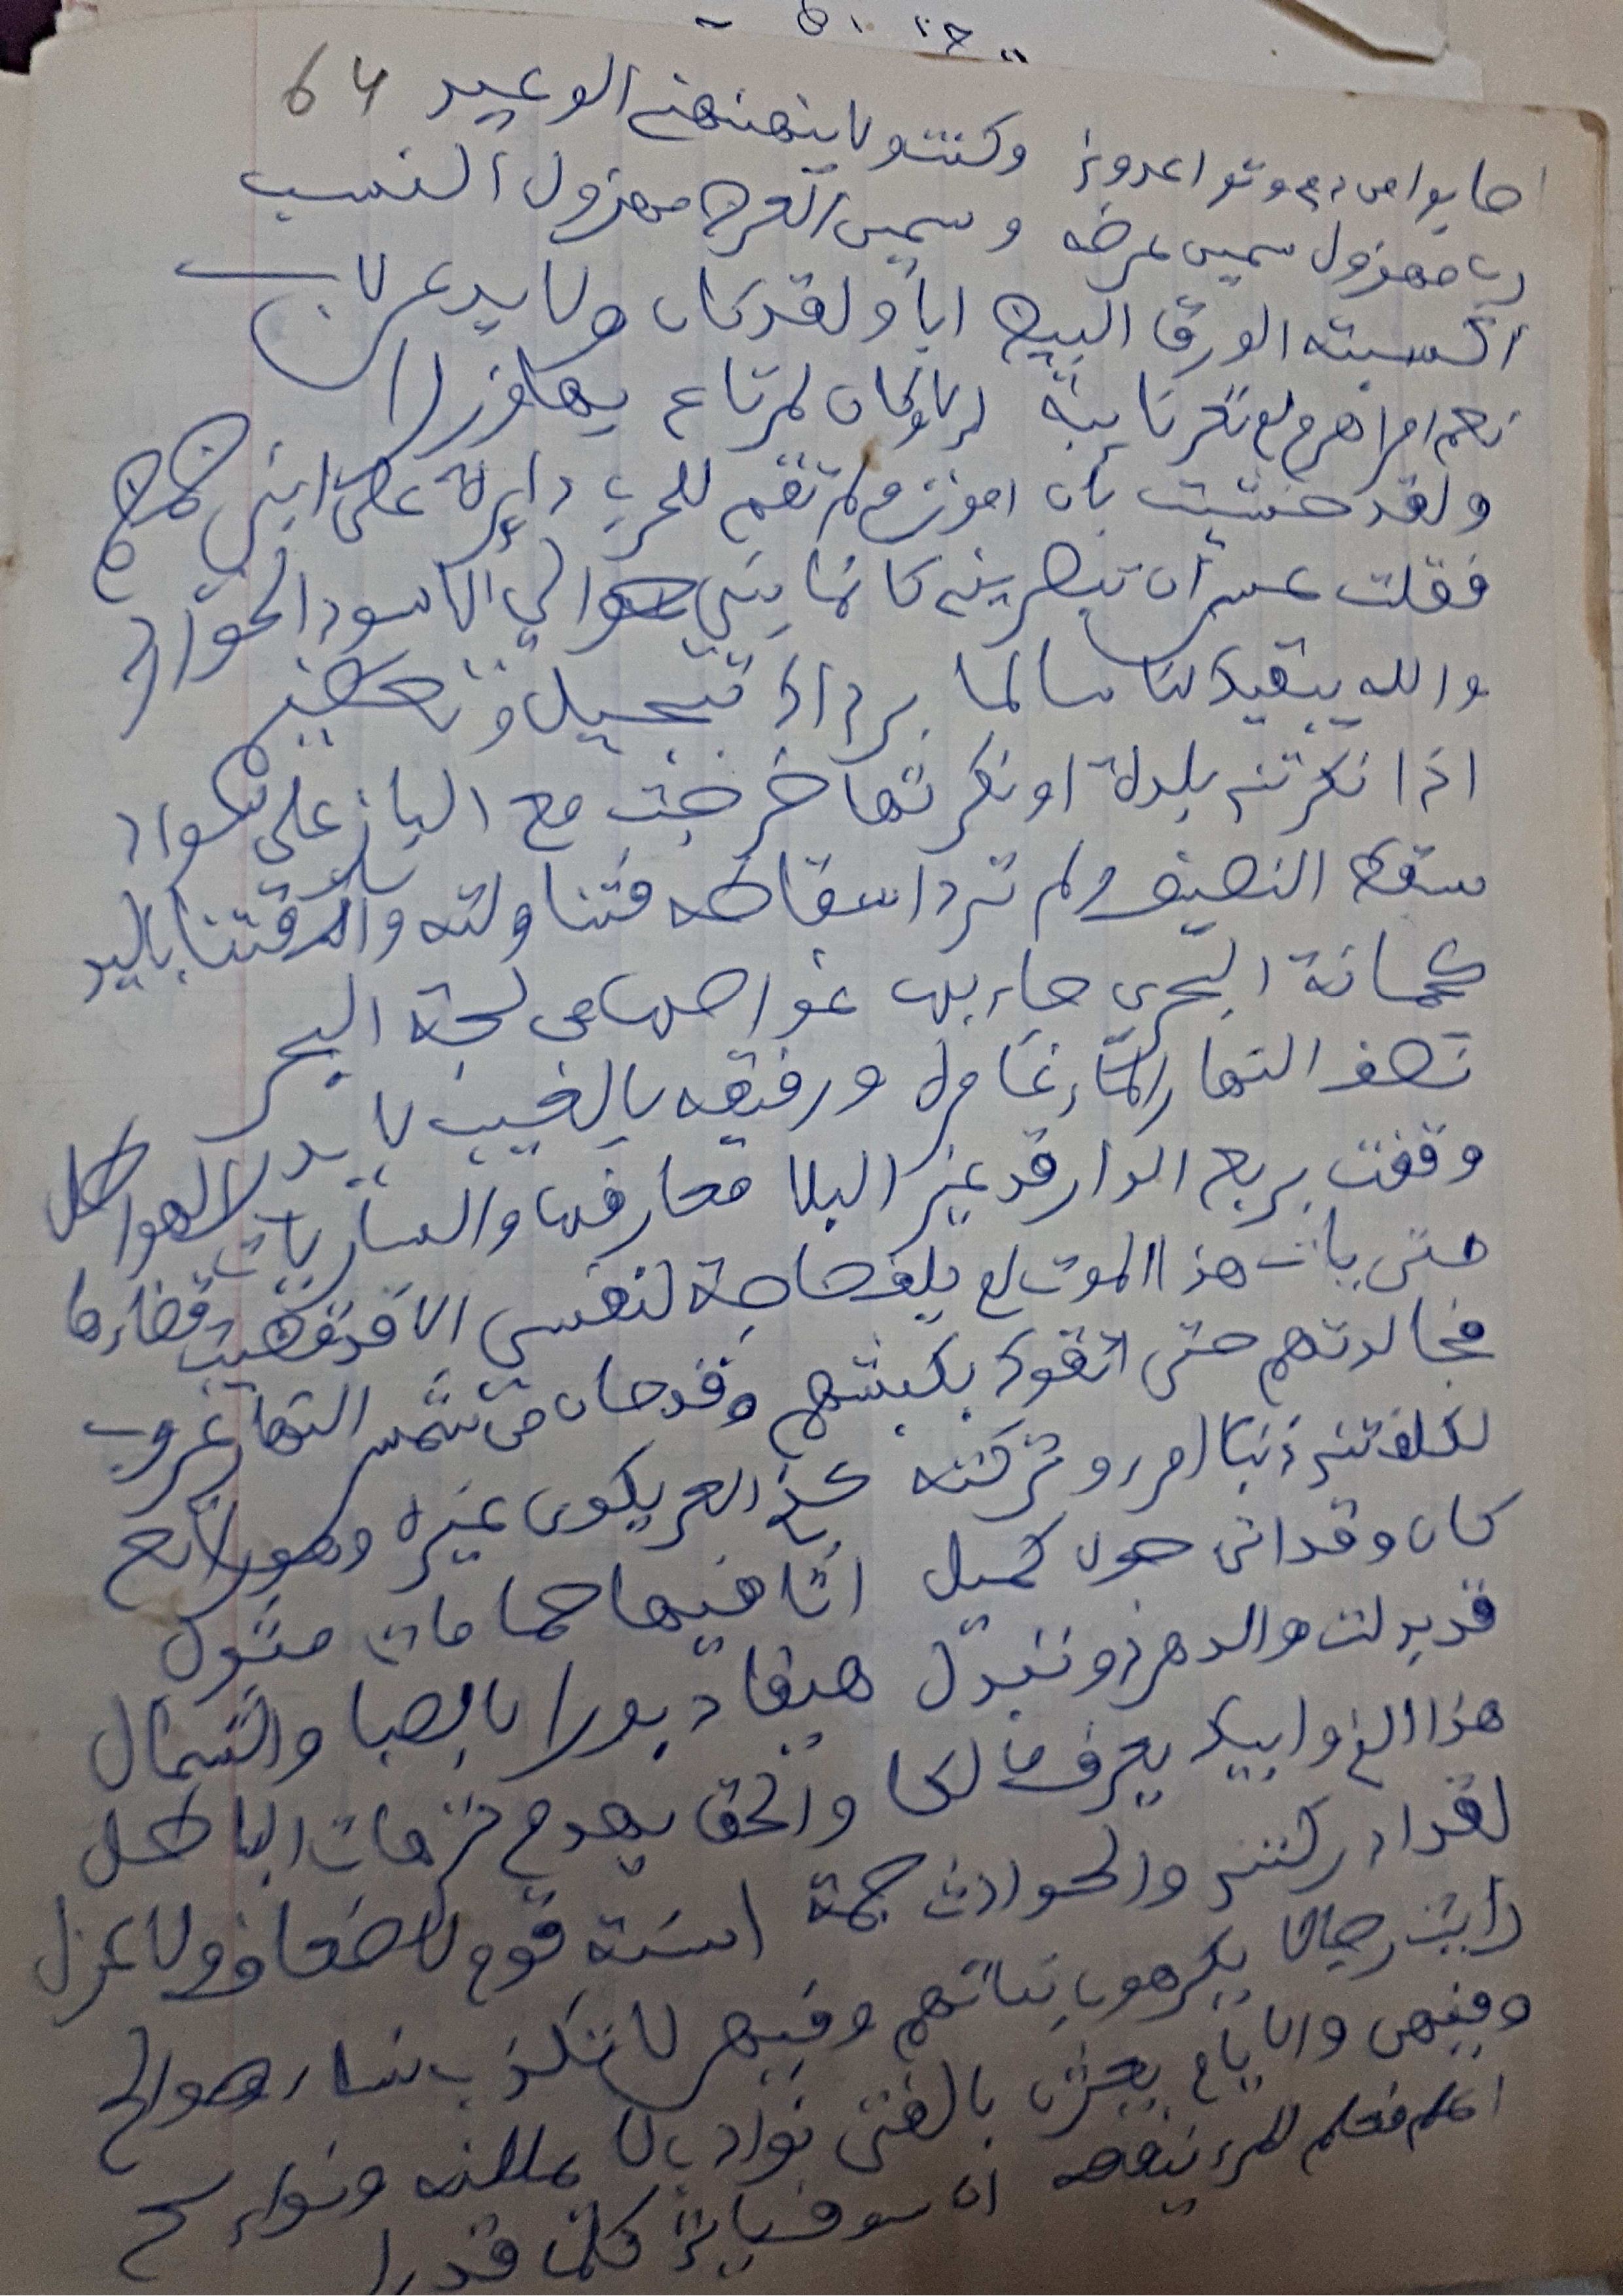 64
اصابوا من دمي وتواعدوني وكنت ولا ينهنهني الوعيد
رب مهزول سمين عرضه وسمين العرض مهزول النسب
اكسبته الورق البيض ابا ولقد كان ولا يدعى لاب
نعم امرا هرم لم تعر نايبة الا وكان لمرتاع بها وزرا
ولقد خشيت بان اموت ولم تقم للحرب دايرة على ابني ضمضم
فقلت عسى ان تبصريني كانما بني حوالي الاسود الحوارد
والله يبقيك لنا سالما برداك تبجيل وتعظيم
اذا نكرتني بلدة او نكرتها خرجت مع الباز على سواد
سقط النصيف ولم ترد اسقاطه فتناولته واتقتنا باليد
كجمانة البحري جاء بها غواصها من لجة البحر
نصف النهار الماء غامره ورفيقه بالغيب لا يدري
وقفت بربع الدار قد غير البلا معارفها والساريات الهواطل
متى يات هذا الموت لم يلف حاجة لنفسي الا قد قضيت قضاءها
فجالدتهم حتى اتقوك بكبشهم وقد حان من شمس النهار غروب
لكلفتني ذنب امرء وتركته كذي العر يكوى غيره وهو راتع
كان وقد اتى حول كميل اثافيها حمامات مثول
قد بدلت والدهر ذو تبدل هيفا دبورا بالصبا والشمال
هذا الذي وابيك يعرف مالكا والحق يدمغ ترهات الباطل
لقد ادركتني والحوادث جمة اسنة قوم لا ضعاف ولا عزل
رايت رجالا يكرهون بناتهم وفيهن لا تكذب نساء صوالح
وفيهن والايام يعثرن بالفتى نوادب لا يمللنه ونوائح
اعلم فعلم المرء ينفعه ان سوف ياتي كل ما قدرا